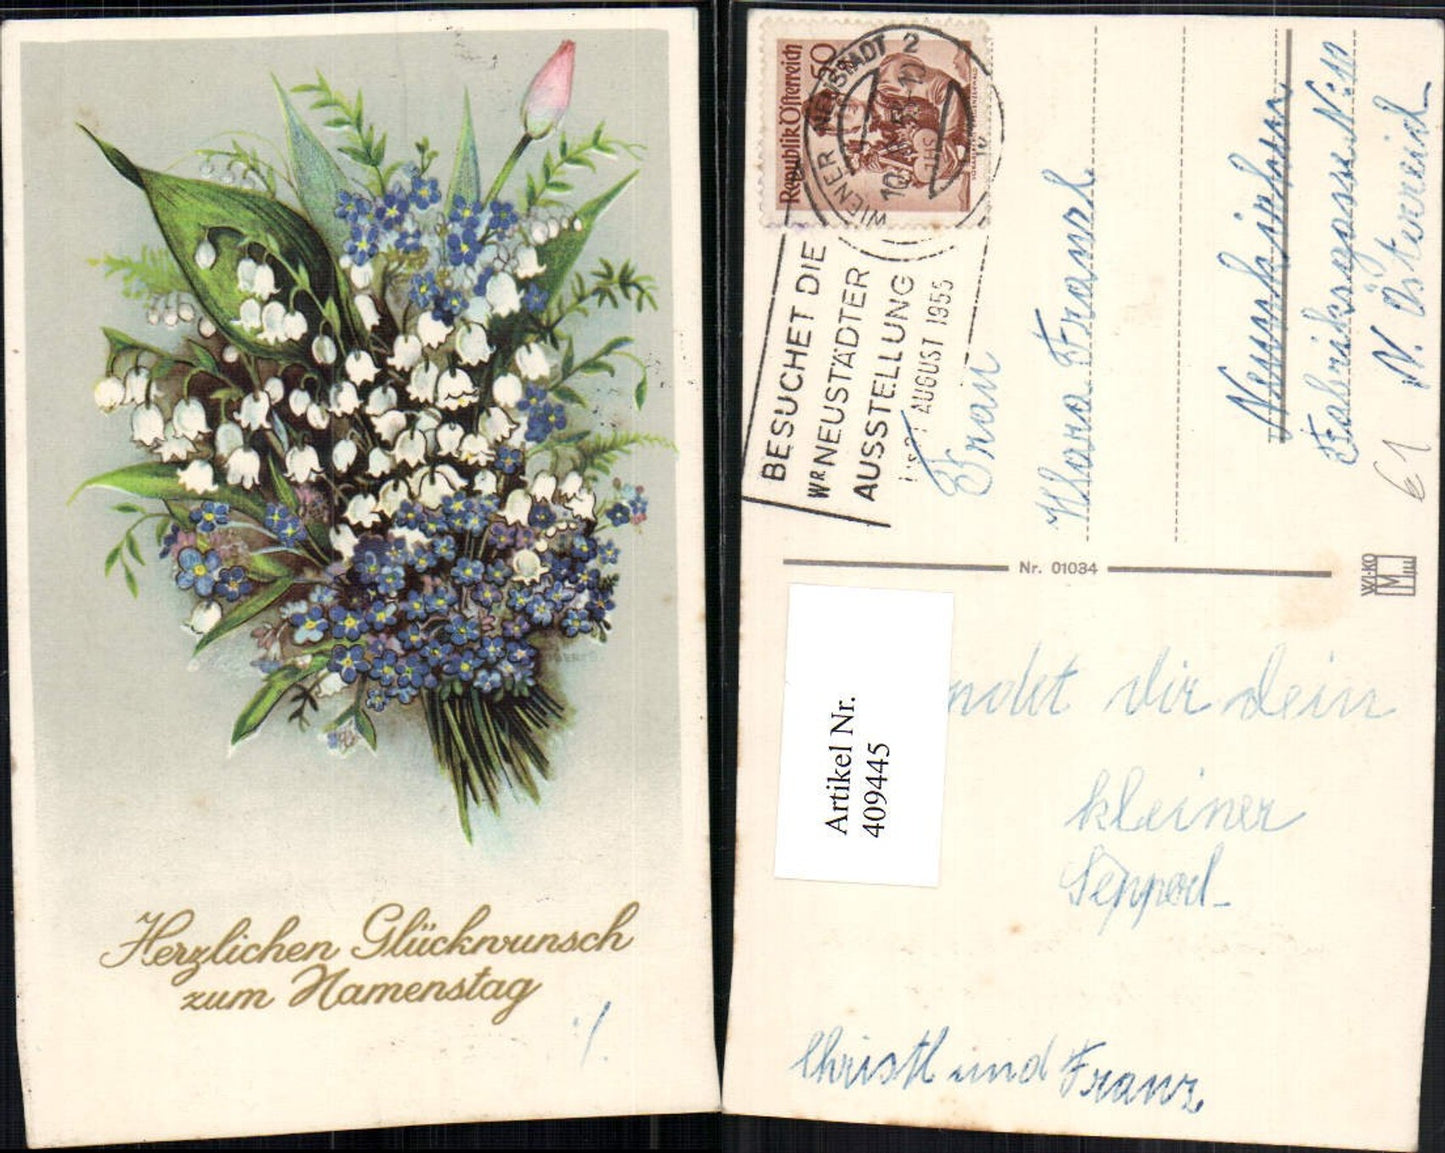 Herzlichen Glückwunsch
zum Namenstag
./.
Republik Österreich
50
WIENER NEUSTADT 2
BESUCHET DIE
WR NEUSTÄDTER
AUSSTELLUNG
AUGUST 1955
Frau
Klara Franzl
Neunkirchen
Fabriksgasse N: 10
N. Östereich
€1
Nr. 01034
WI-KO
M
Artikel Nr.
409445
ndet dir dein
kleiner
Sepperl-
Christl und Franz